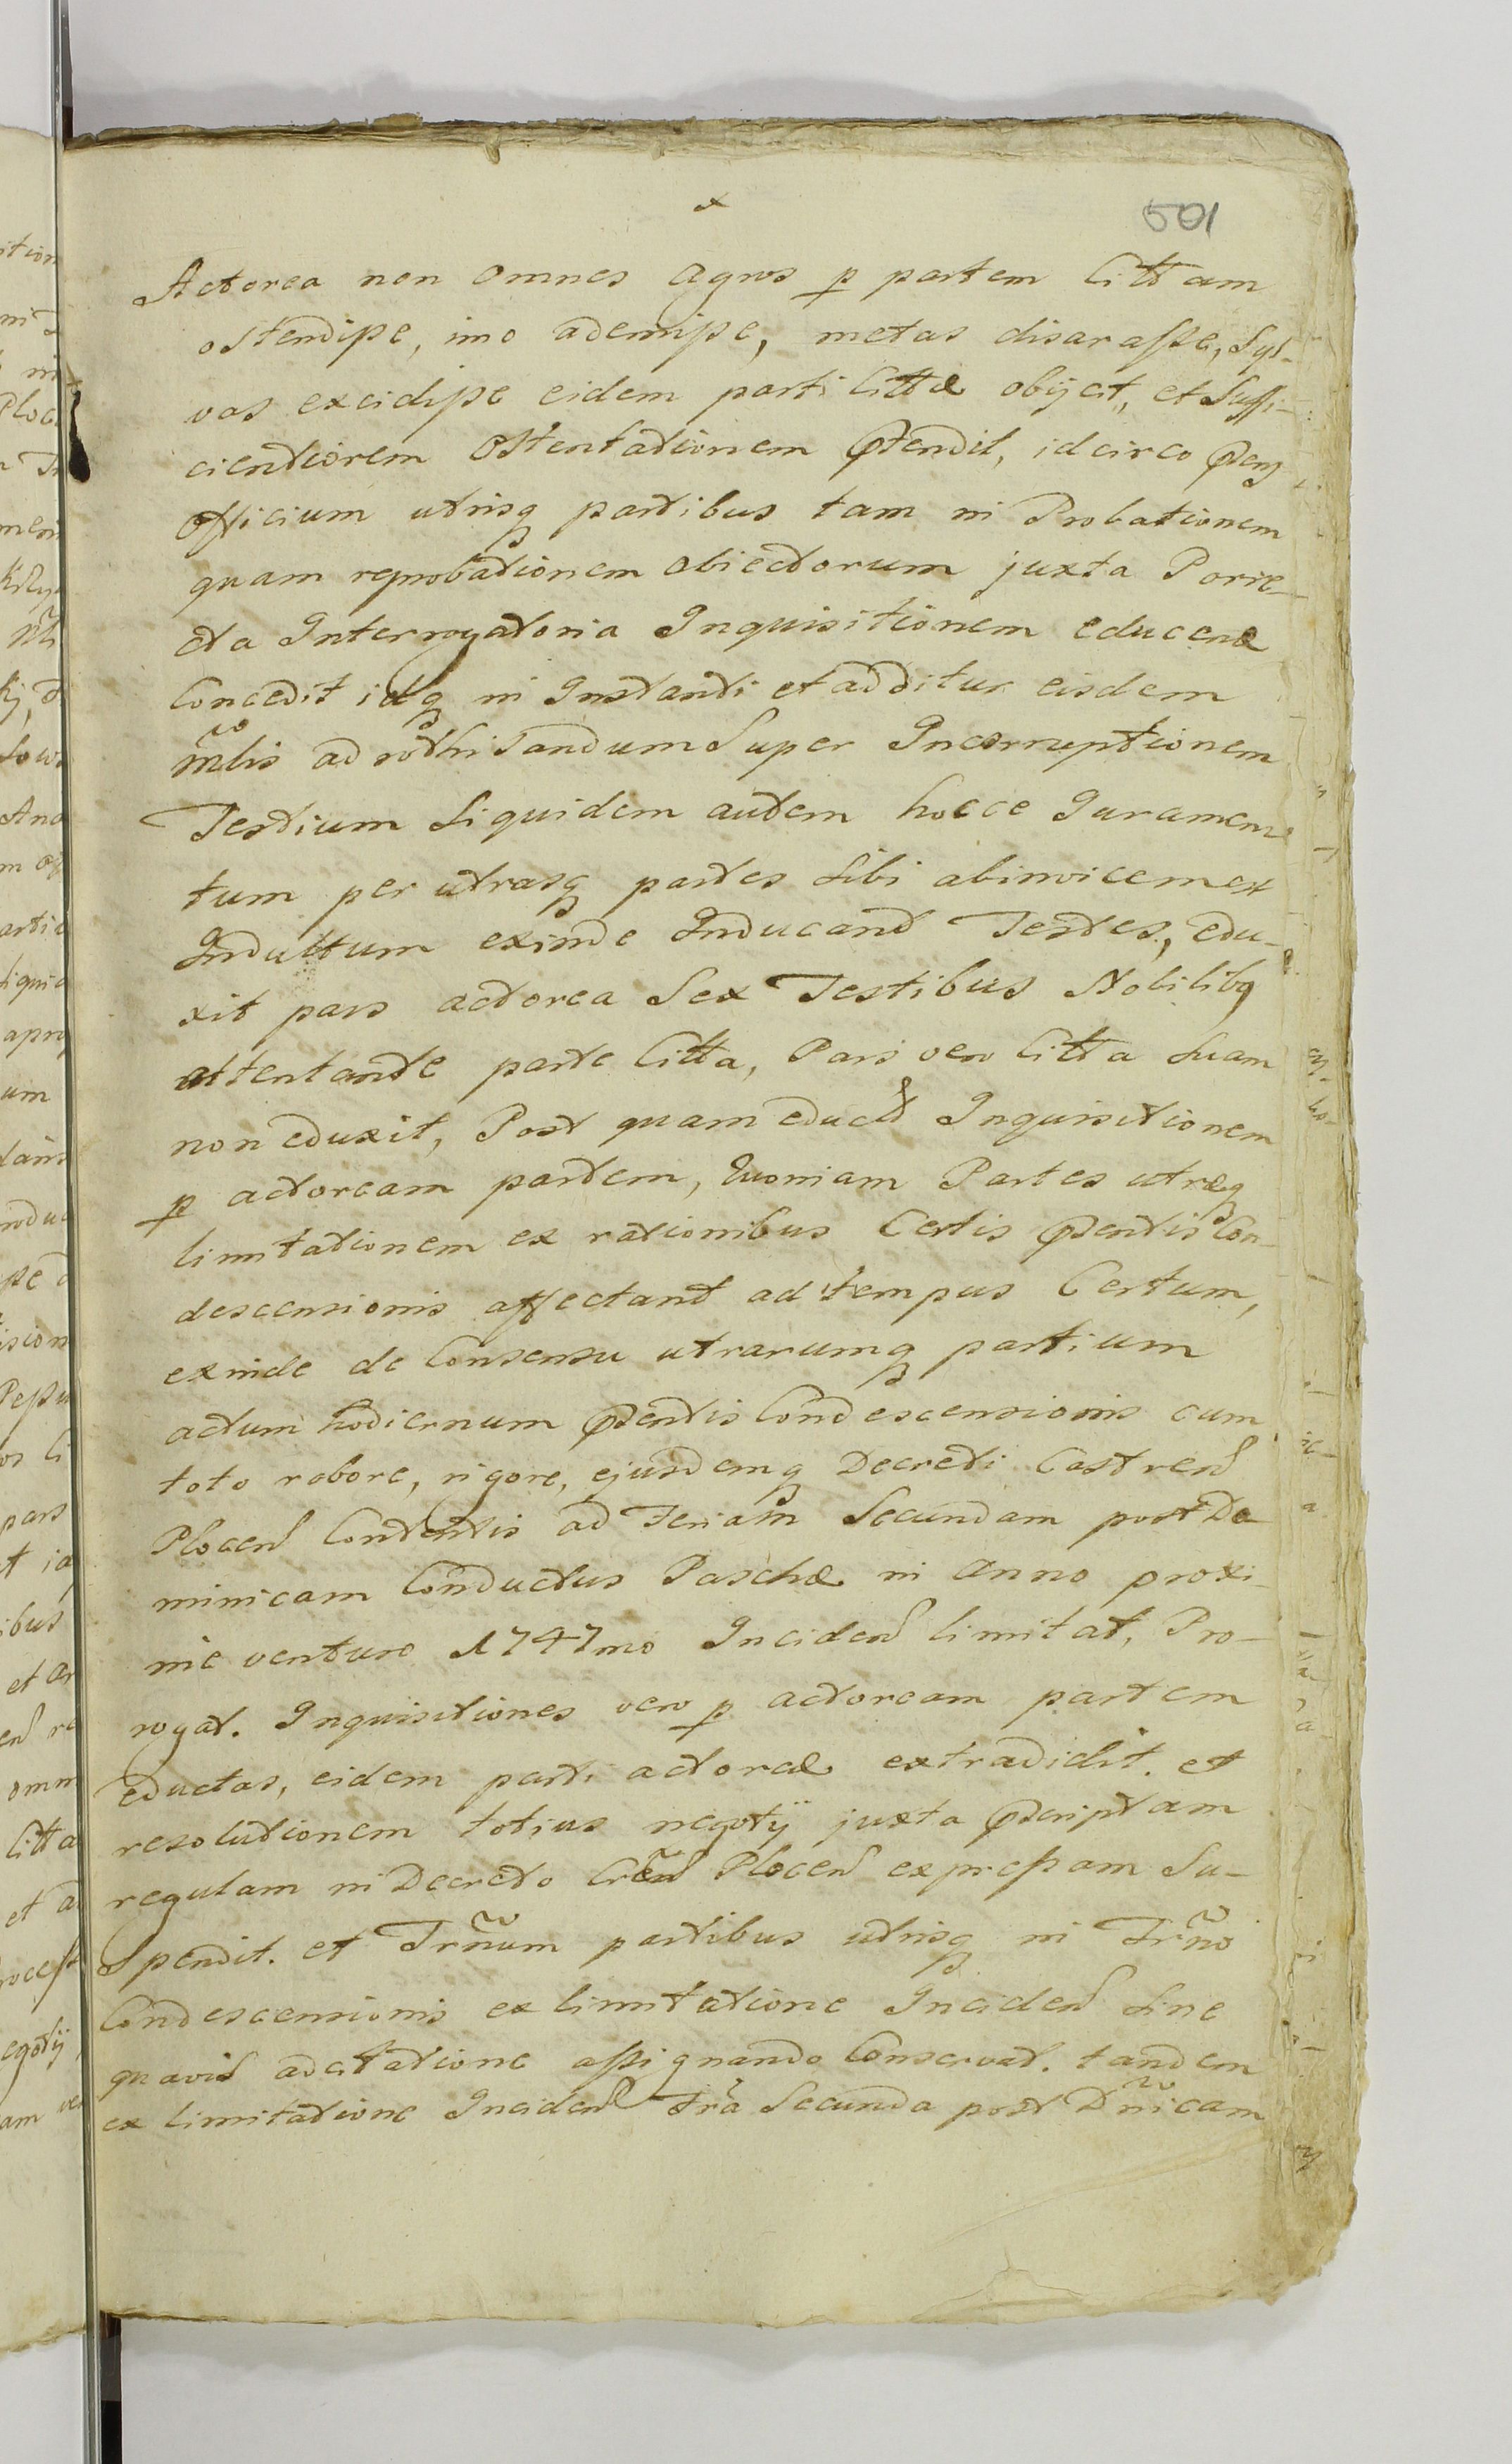 501
Actorea non omnes agros p partem Cittam
ostendisse, imo ademisse, metas disarasse, Syl-
vas excidisse eidem parti Cittæ obijcit, et Suffi-
cientiorem Ostentationem ptendit, idcirco pns
Officium utrisq partibus tam in Probationem
quam reprobationem obiectorum juxta Porre-
cta Interrogatoria Inquisitionem educere
Concedit idq in Instanti et additur eisdem
Mlis ad rothisandum Super Incorruptionem
Testium Siquidem autem hocce Juramen-
tum per utrasq partes Sibi abinvicem est
Indultum exinde Inducand Testes, edu-
xit pars actorea Sex Testibus Nobilibq
attentante parte Citta, Pars vero Citta Suam
non eduxit, Post quam educt Inquisitionem
p actoream partem, Quoniam Partes utræq
limitationem ex rationibus Certis psentis Con-
descensionis affectant ad tempus Certum,
exinde de Consensu utrarumq partium
actum hodiernum psentis Condescensionis cum
toto robore, rigore, ejusdemq Decreti Castren
Plocen Contentis ad Feriam Secundam post Do
minicam Conductus Paschæ in Anno proxi-
me venturo 1747mo Inciden limitat, Pro-
rogat. Inquisitiones vero p actoream partem
eductas, eidem parti actoreæ extradidit. et
resolutionem totius negotij juxta pscriptam
regulam in Decreto Cren Plocen expressam Su-
Spendit. et Trnum partibus utrisq in Trno
Condescensionis ex limitatione Inciden Sine
quavis adcitatione assignando Conservat. tandem
ex limitatione Inciden Fra Secunda post Dnicam